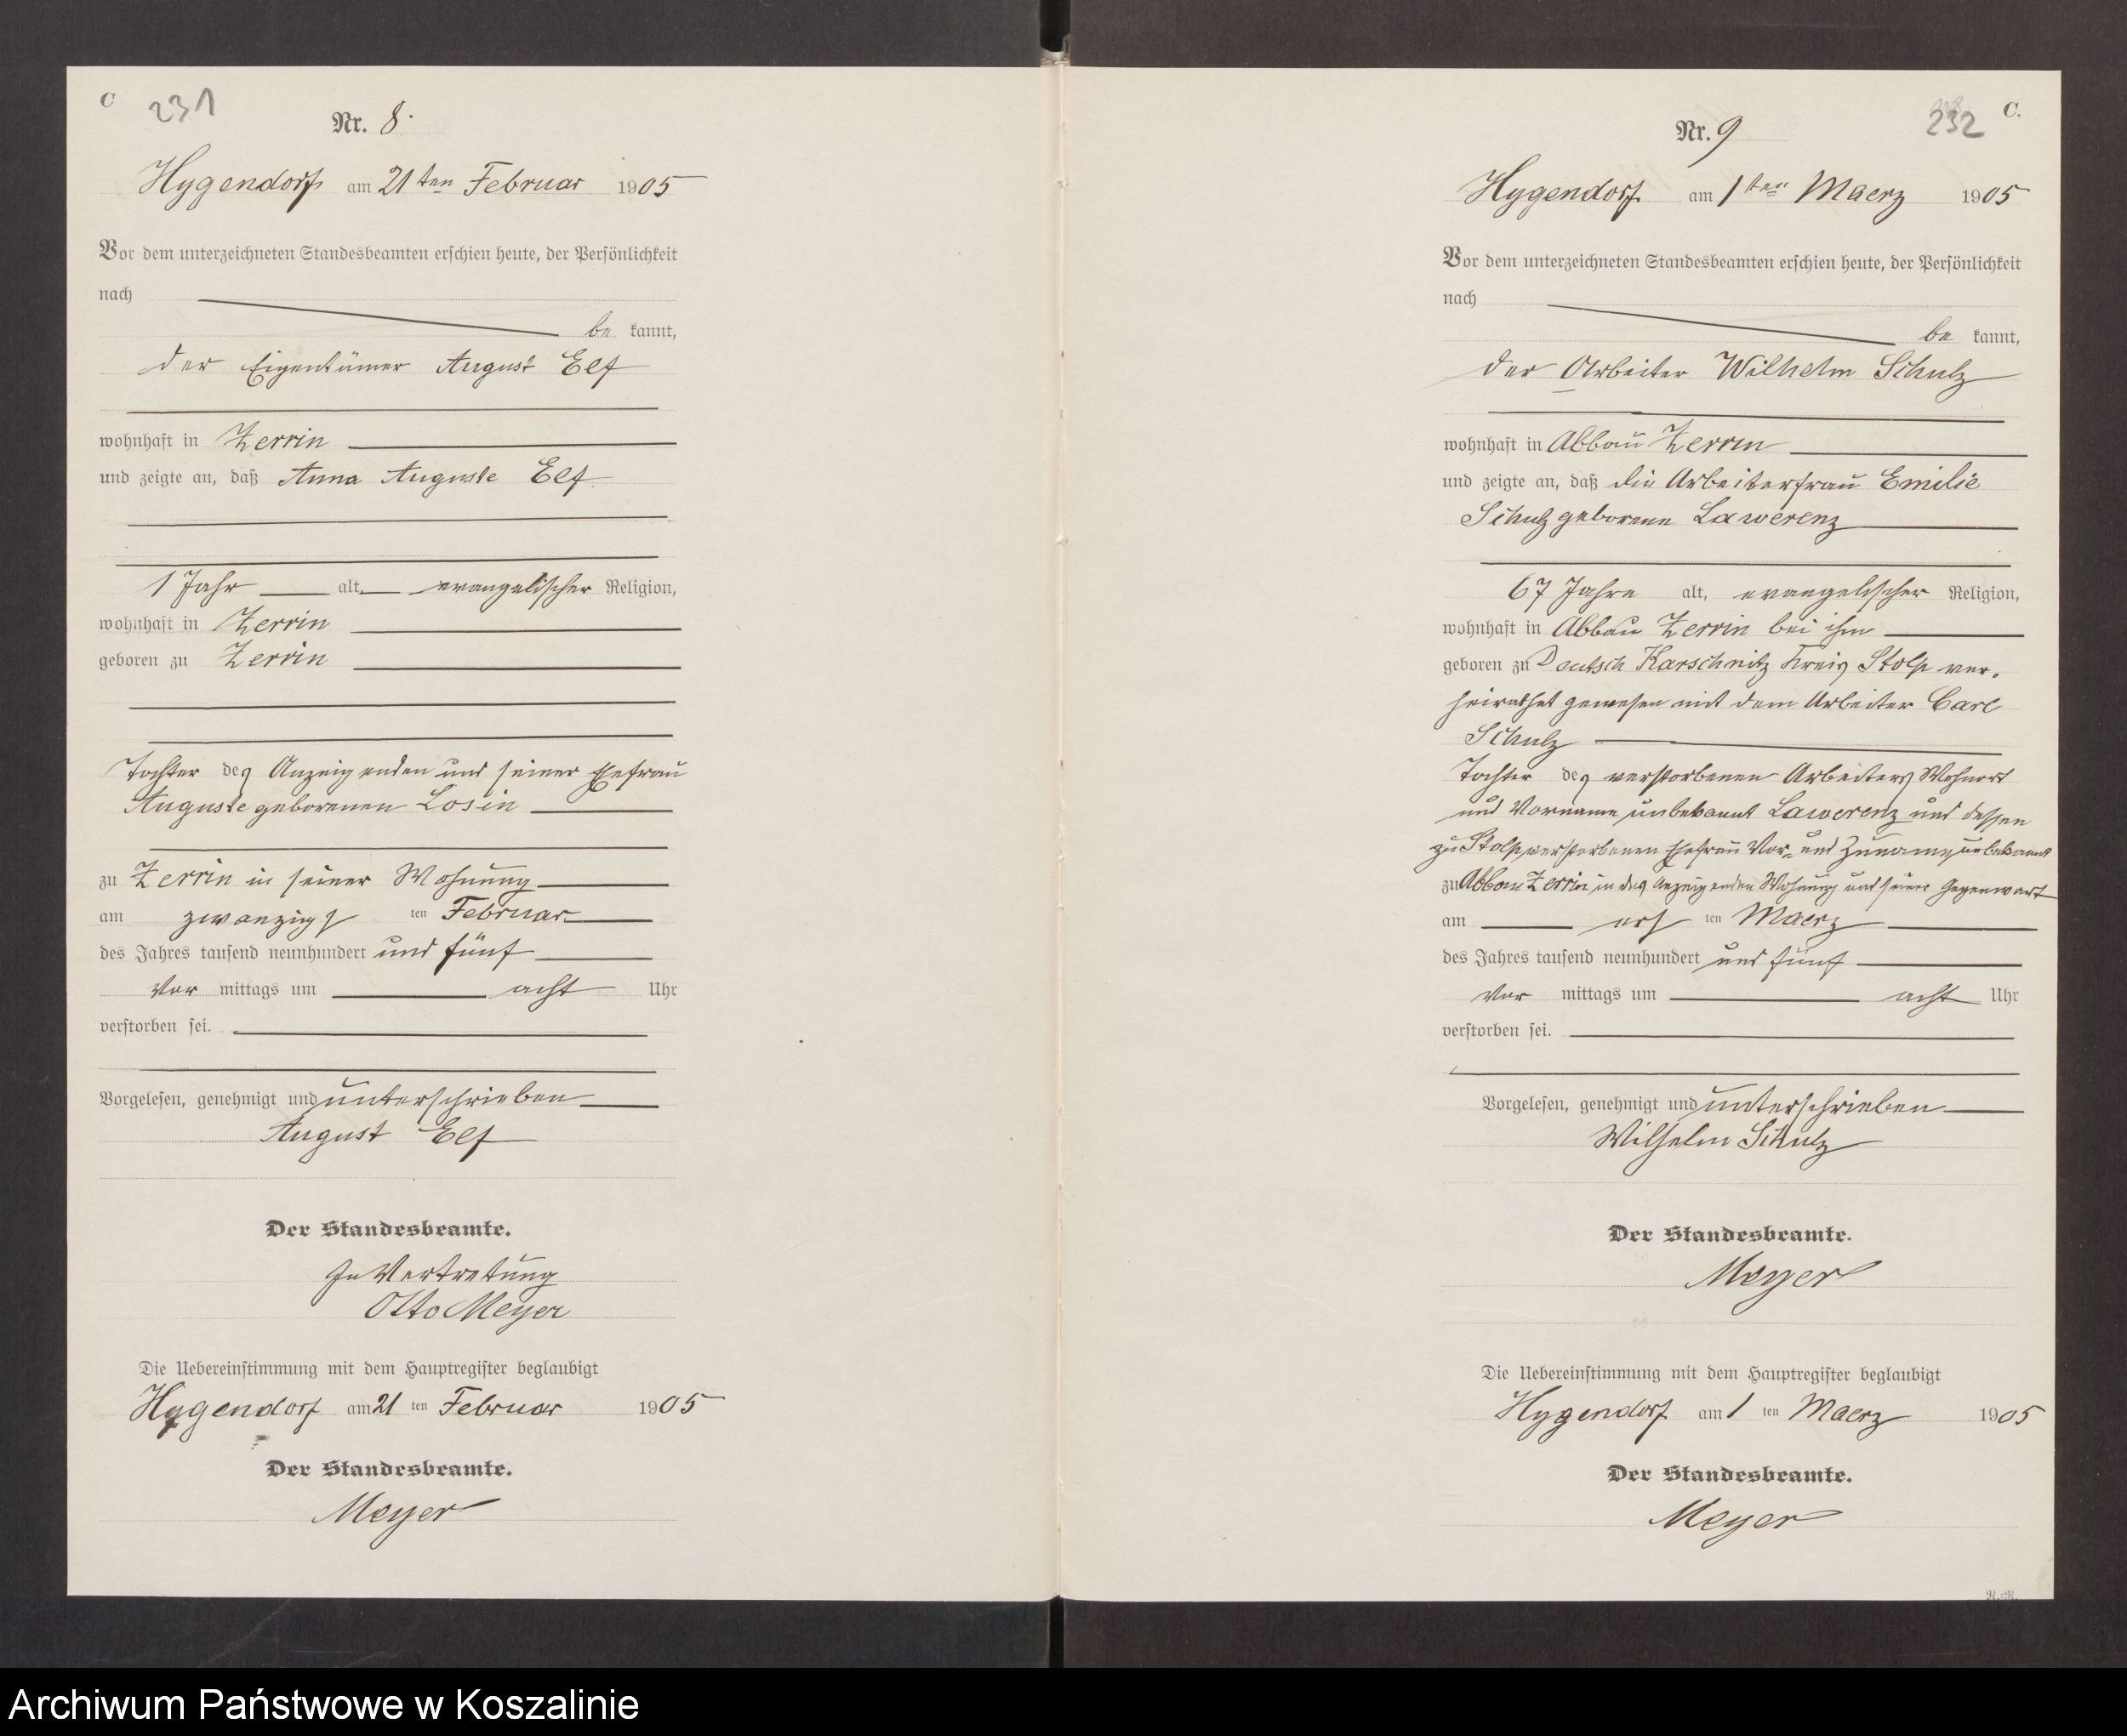 C 231
Nr. 8.
Hygendorf am 21ten Februar 1905
Vor dem unterzeichneten Standesbeamten erschien heute, der Persönlichkeit
nach
be kannt,
der Eigentümer August Elf
wohnhaft in Zerrin
und zeigte an, daß Anna Auguste Elf
1 Jahr alt, evangelischer Religion,
wohnhaft in Zerrin
geboren zu Zerrin
Tochter des Anzeigenden und seiner Ehefrau
Auguste geborenen Losin
zu Zerrin in seiner Wohnung
am zwanzigs ten Februar
des Jahres tausend neunhundert und fünf
Vor mittags um acht Uhr
verstorben sei.
Vorgelesen, genehmigt und unterschrieben
August Elf
Der Standesbeamte.
In Vertretung
Otto Meyer
Die Uebereinstimmung mit dem Hauptregister beglaubigt
Hygendorf am 21 ten Februar 1905
Der Standesbeamte.
Meyer
232 C.
Nr. 9
Hygendorf am 1ten Maerz 1905
Vor dem unterzeichneten Standesbeamten erschien heute, der Persönlichkeit
nach
be kannt,
der Arbeiter Wilhelm Schulz
wohnhaft in Abbau Zerrin
und zeigte an, daß die Arbeiterfrau Emilie
Schulz geborene Lawerenz
67 Jahre alt, evangelischer Religion,
wohnhaft in Abbau Zerrin bei ihm
geboren zu Deutsch Karschnitz Kreis Stolp ver-
heirathet gewesen mit dem Arbeiter Carl
Schulz
Tochter des verstorbenen Arbeiters Wohnort
und Vorname unbekannt Lawerenz und dessen
zu Stolp verstorbenen Ehefrau Vor- und Zuname unbekannt
zu Abbau Zerrin in des Anzeigenden Wohnung und seiner Gegenwart
am ers ten Maerz
des Jahres tausend neunhundert und fünf
Vor mittags um acht Uhr
verstorben sei.
Vorgelesen, genehmigt und unterschrieben
Wilhelm Schulz
Der Standesbeamte.
Meyer
Die Uebereinstimmung mit dem Hauptregister beglaubigt
Hygendorf am 1 ten Maerz 1905
Der Standesbeamte.
Meyer
Archiwum Państwowe w Koszalinie